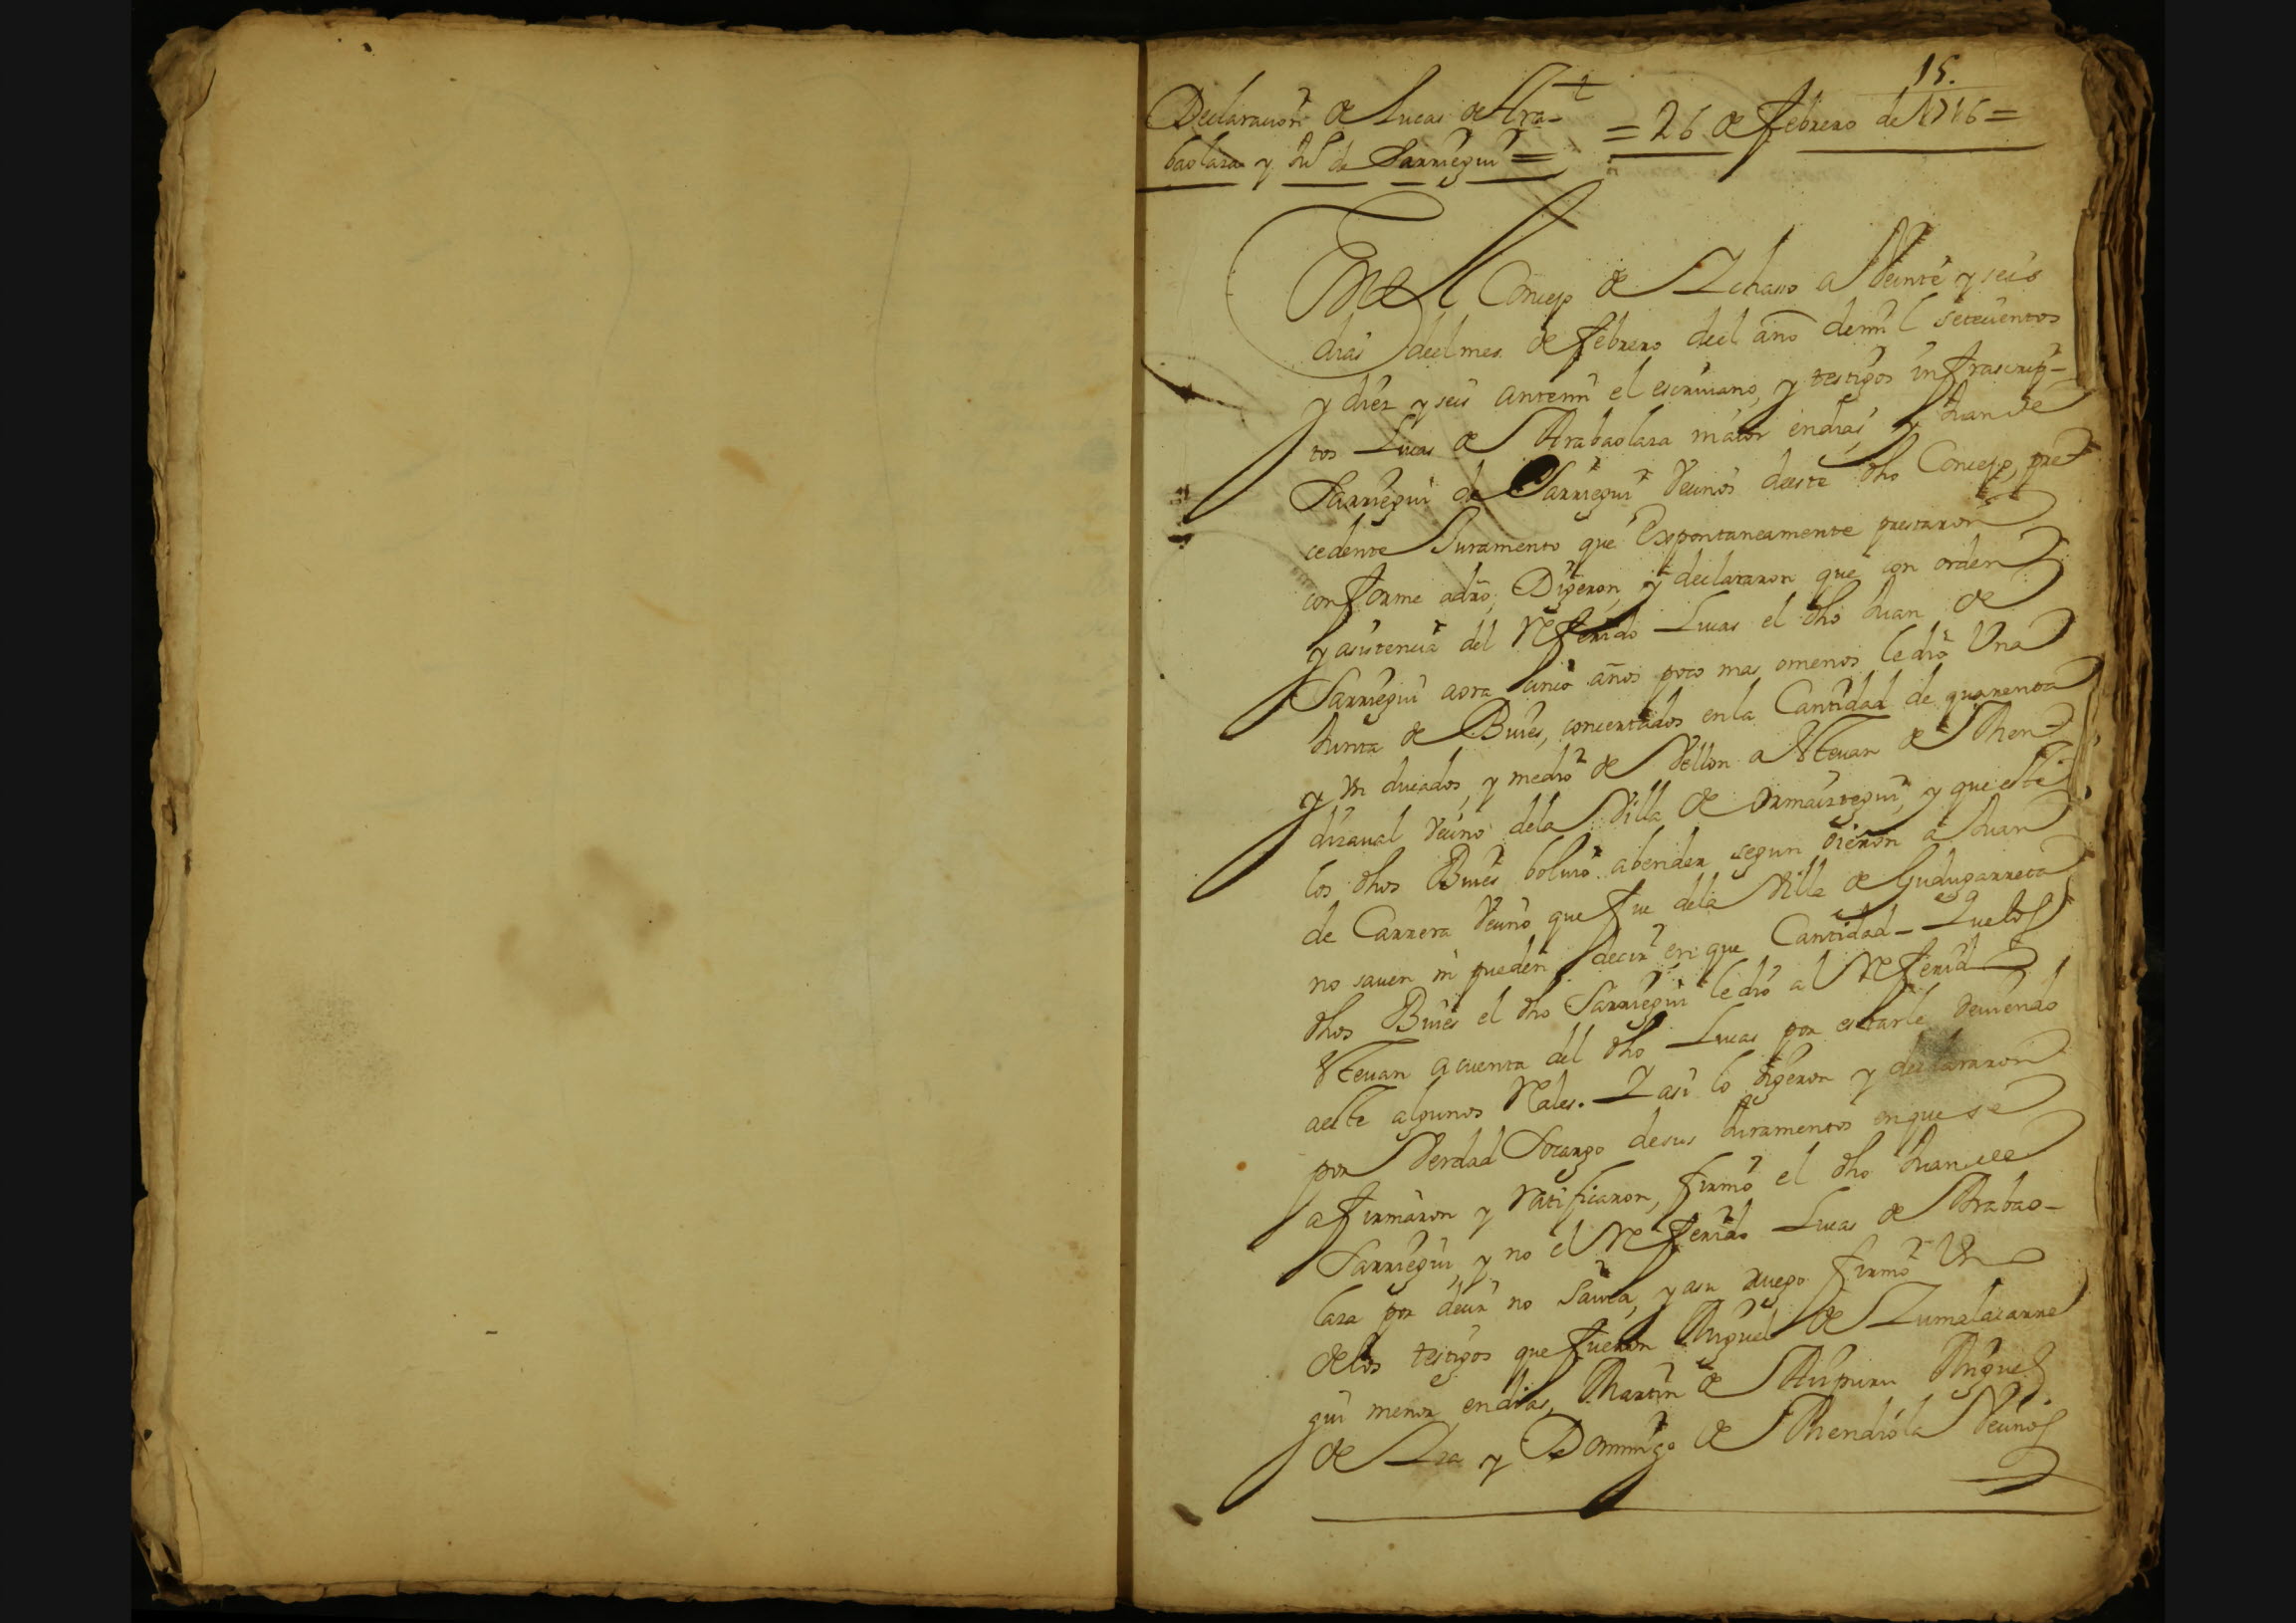 15.
Declaracion de Lucas de Ara-
baolaza y Ju.º de Sarriegui =
= 26 de febrero de 1716 =
En el Concejo de Ichasso a Veinte y seis
dias del mes de febrero del año de mil setecientos
y diez y seis antemi el escriuano, y testigos infrascrip-
tos Lucas de Arabaolaza maior endias, y Juan de
Sarriegui de Sarriegui Vecinos deeste dho Concejo, pre
cedente Juramento que Expontaneamente prestaron
conforme adro, Digeron, y declararon que con orden
y asistencia del Referido Lucas el dho Juan de
Sarriegui aora cinco años poco mas omenos le dio Una
Junta de Buies, concertados enla Cantidad de quarenta
y Un ducados, y medio de Vellon a Esteuan de Men
dizaual Vecino dela Villa de Ormaiztegui, y que este
los dhos Buies boluio abender segun oieron a Juan
de Carrera Vecino que fue dela Villa de Gudugarreta
no sauen ni pueden decir en que Cantidad - Y que los
dhos Buies el dho Sarriegui le dio al Referido
Esteuan acuenta del dho Lucas por estarle deuiendo
aeste algunos Reales. Y asi lo digeron y declararon
por Verdad socargo desus Juramentos enque se
afirmaron y Ratificaron, firmo el dho Juan de
Sarriegui, y no el Referido Lucas de Arabao-
laza por decir no sauia, y asu ruego firmo Un
delos testigos que fueron Miguel de Zumalacarre
gui menor endias, Martin de Aispuru Miguel
de Iza y Domingo de Mendiola Vecinos